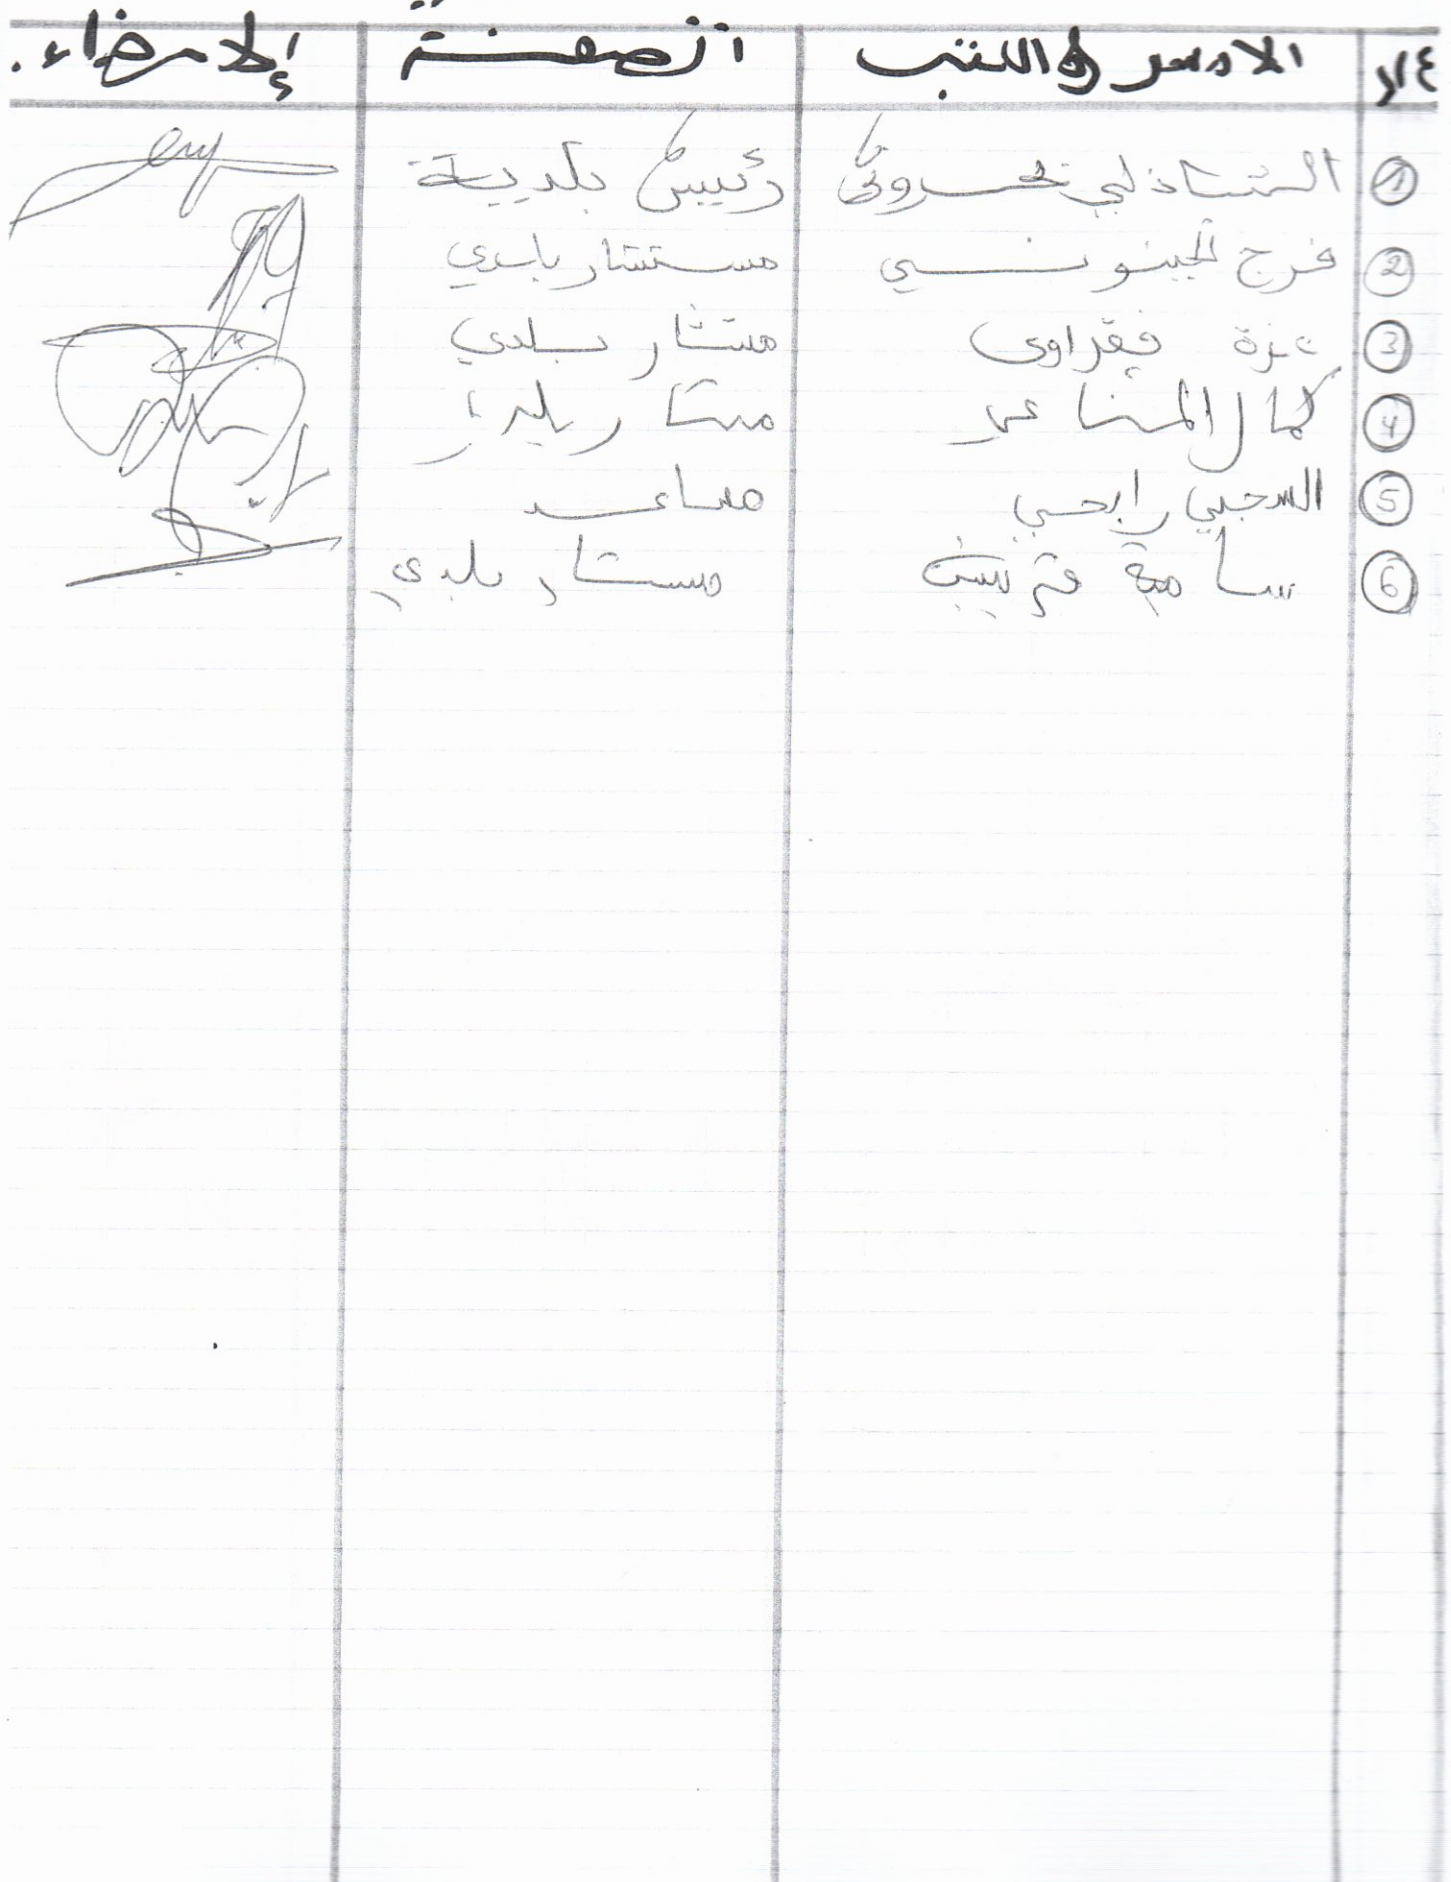 ع/ر الاسم واللقب الصفة الإمضاء
1 الشاذلي رئيس بلدية
2 فرج الجينوني مستشار بلدي
3 عزة فقراوي مستشار بلدي
4 كمال المناعي مستشار بلدي
5 رابحي مساعد
6 سامية مستشار بلدي